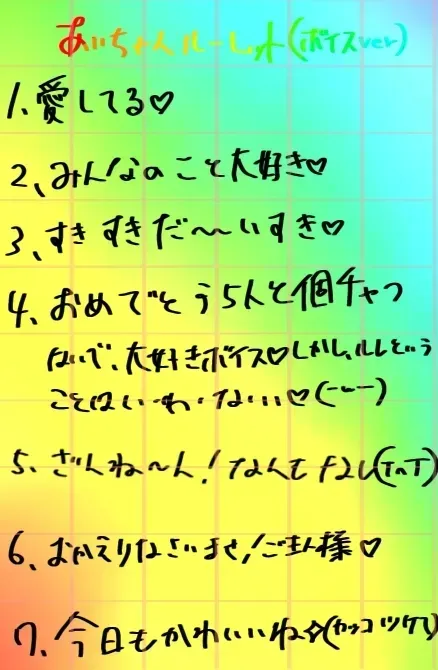 あいちゃんルーレット(ボイスver)
1、愛してる♡
2、みんなのこと大好き♡
3、すきすきだ〜〜いすき♡
4、おめでとう5人と個チャつ
ないで、大好きボイス♡しかし、ルルという
ことはい・わ・ない♡(ーーー)
5、ざんね〜ん!なんもナシ(TnT)
6、おかえりなさいませ!ご主人様♡
7、今日もかわいいね☆(カッコツケて)